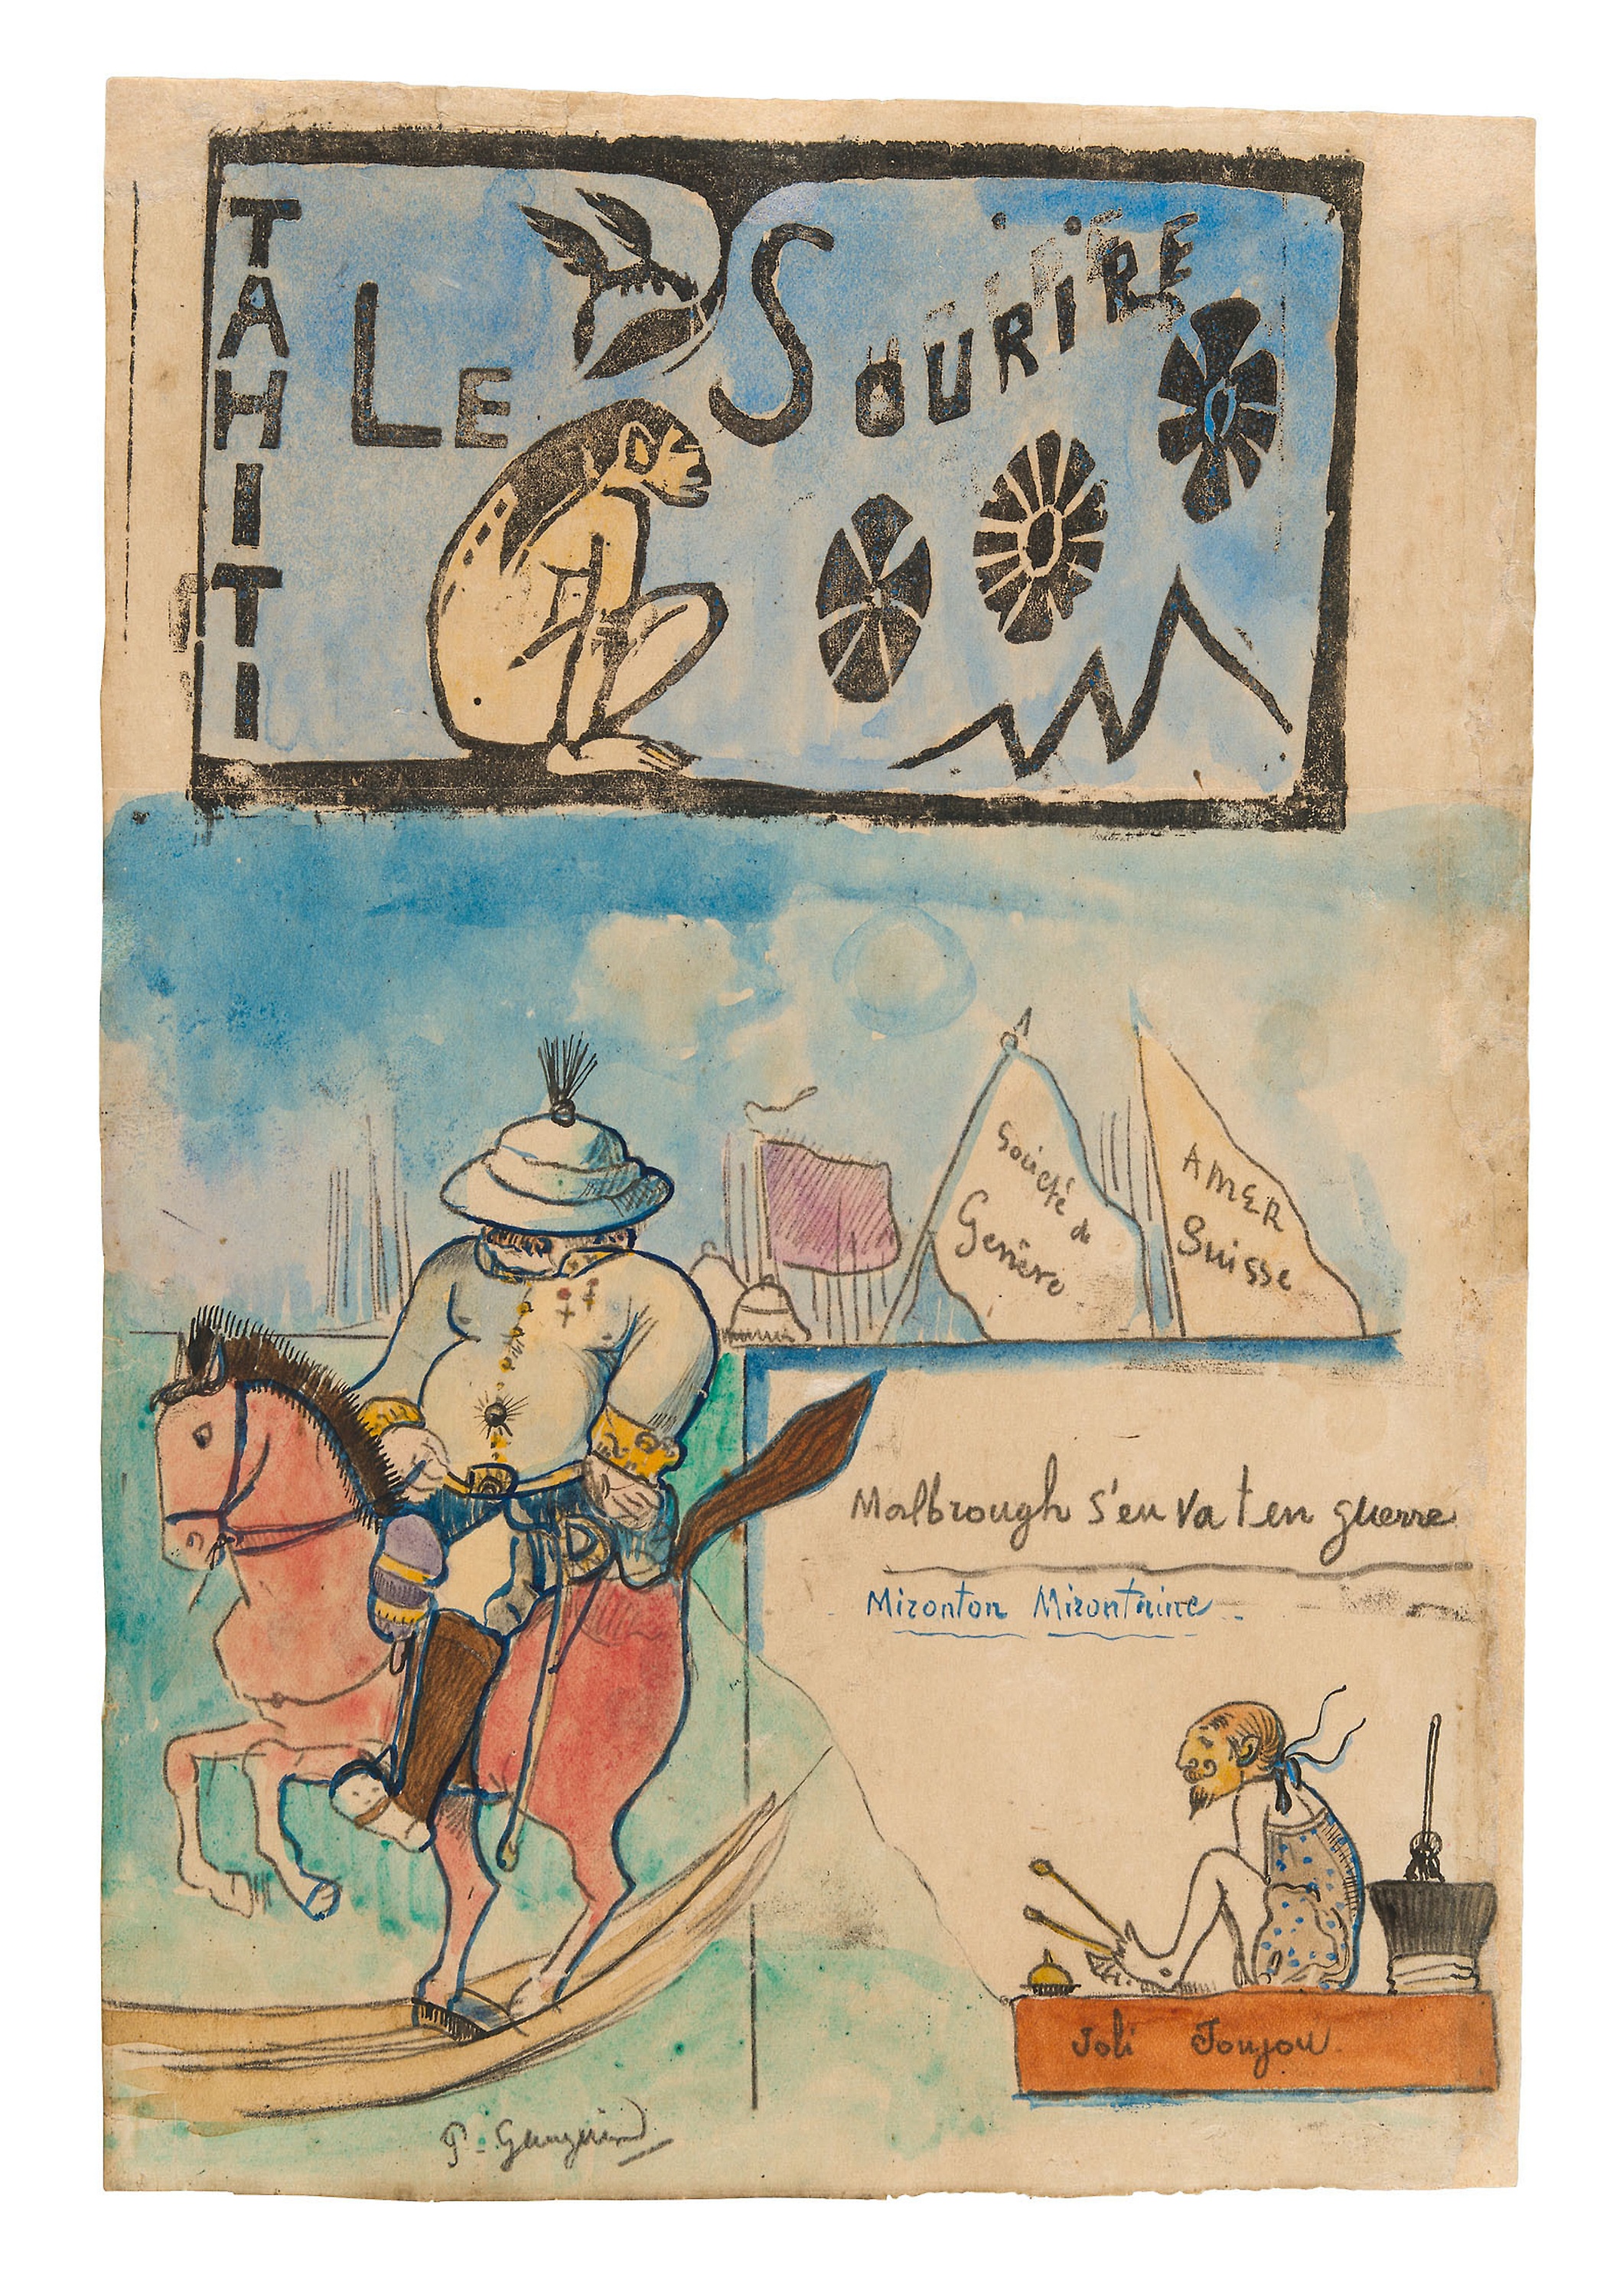 TAHITI
LE SOURIRE
Société de
Genève
AMER
Suisse
Malbrough s'en va t en guerre
Mironton Mirontaine
Joli Joujou
P. Gauguin